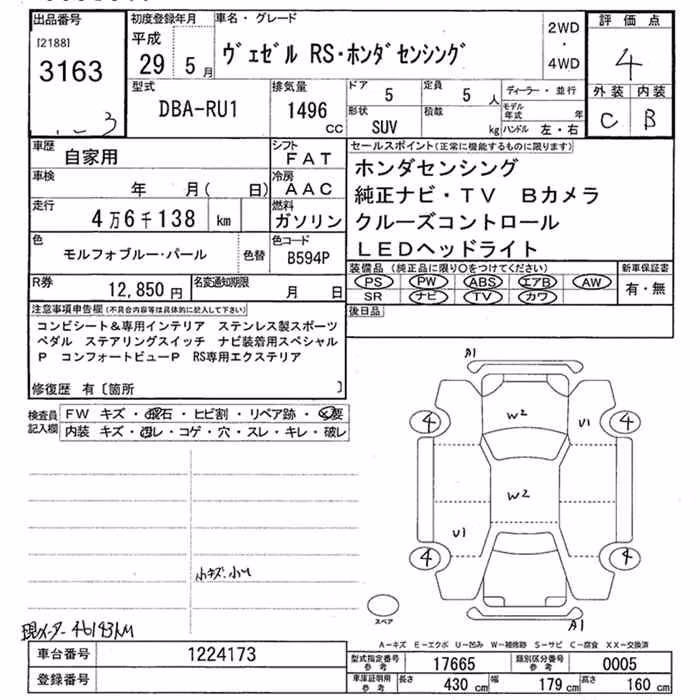 出品番号
[2188]
3163
初度登録年月
平成
29 5 月
車名・グレード
ヴェゼル RS・ホンダセンシング
2WD
・
4WD
評価点
4
外装 内装
C B
型式
DBA-RU1
排気量
1496
CC
ドア
5
定員
5 人
形状
SUV
積載
kg
ディーラー・並行
モデル年式 年
ハンドル 左・右
車歴
自家用
シフト
FAT
車検
年 月( 日)
冷房
AAC
走行
4万6千138 km
燃料
ガソリン
色
モルフォブルー・パール
色替
色コード
B594P
R券
12,850 円
名変通知期限
月 日
セールスポイント(正常に機能するものに限ります)
ホンダセンシング
純正ナビ・TV Bカメラ
クルーズコントロール
LEDヘッドライト
装備品(純正品に限り○をつけてください)
PS PW ABS エアB AW
SR ナビ TV カワ
新車保証書
有・無
後日品
注意事項申告欄(不具合内容等は具体的に記入して下さい)
コンビシート&専用インテリア ステンレス製スポーツ
ペダル ステアリングスイッチ ナビ装着用スペシャル
P コンフォートビューP RS専用エクステリア
修復歴 有〔箇所 〕
検査員
記入欄
FW キズ・飛石・ヒビ割・リペア跡・交要
内装 キズ・凹レ・コゲ・穴・スレ・キレ・破レ
A1
W2
4
U1
4
W2
U1
4
4
A1
スペア
小キズ.小凹
現メーター46143KM
A-キズ E-エクボ U-凹み W-補修跡 S-サビ C-腐食 XX-交換済
車台番号
1224173
登録番号
型式指定番号
参考
17665
類別区分番号
参考
0005
車庫証明用
参考
長さ 430 cm
幅 179 cm
高さ 160 cm